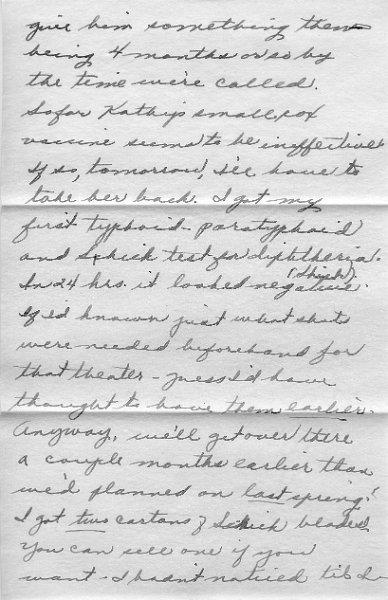 give him something then
being 4 months or so by
the time we're called.
So far Kathy's small pox
vaccine seems to be ineffective
If so, tomorrow, I'll have to
take her back. I got my
first typhoid - paratyphoid
and Schick test for diphtheria.
In 24 hrs. it looked negative. (Shick)
If I'd known just what shots
were needed beforehand for
that theater - guess I'd have
thought to have them earlier.
Anyway, we'll get over there
a couple months earlier than
we'd planned on last spring!
I got two cartons of Schick blades.
You can sell one if you
want - I hadn't noticed til I